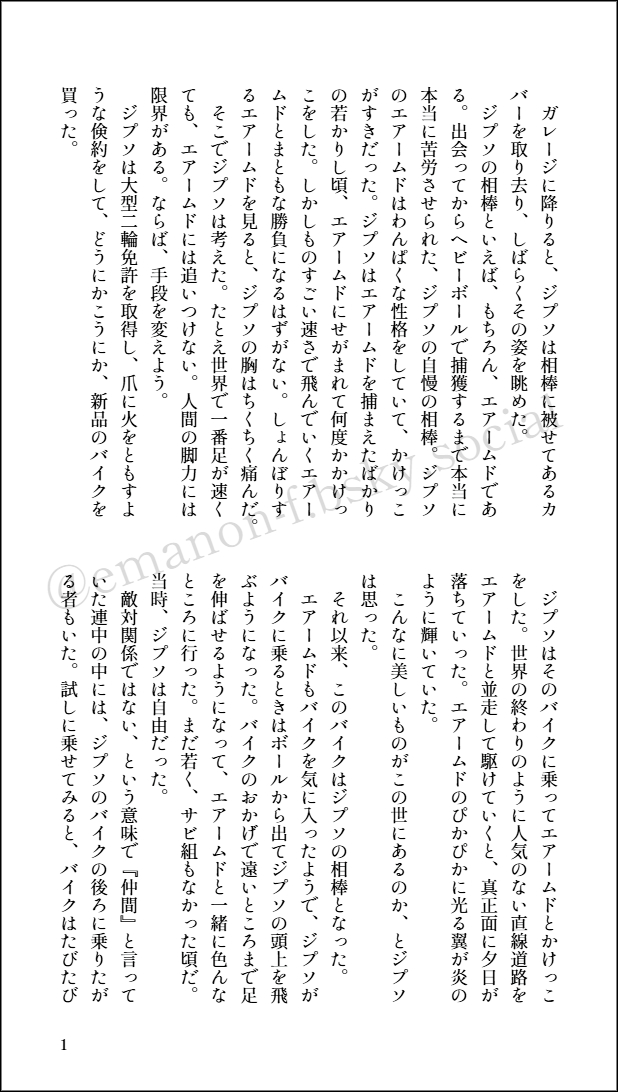 ガレージに降りると、ジプソは相棒に被せてあるカ
バーを取り去り、しばらくその姿を眺めた。
　ジプソの相棒といえば、もちろん、エアームドであ
る。出会ってからヘビーボールで捕獲するまで本当に
本当に苦労させられた、ジプソの自慢の相棒。ジプソ
のエアームドはわんぱくな性格をしていて、かけっこ
がすきだった。ジプソはエアームドを捕まえたばかり
の若かりし頃、エアームドにせがまれて何度かかけっ
こをした。しかしものすごい速さで飛んでいくエアー
ムドとまともな勝負になるはずがない。しょんぼりす
るエアームドを見ると、ジプソの胸はちくちく痛んだ。
　そこでジプソは考えた。たとえ世界で一番足が速く
ても、エアームドには追いつけない。人間の脚力には
限界がある。ならば、手段を変えよう。
　ジプソは大型二輪免許を取得し、爪に火をともすよ
うな倹約をして、どうにかこうにか、新品のバイクを
買った。
　ジプソはそのバイクに乗ってエアームドとかけっこ
をした。世界の終わりのように人気のない直線道路を
エアームドと並走して駆けていくと、真正面に夕日が
落ちていった。エアームドのぴかぴかに光る翼が炎の
ように輝いていた。
　こんなに美しいものがこの世にあるのか、とジプソ
は思った。
　それ以来、このバイクはジプソの相棒となった。
　エアームドもバイクを気に入ったようで、ジプソが
バイクに乗るときはボールから出てジプソの頭上を飛
ぶようになった。バイクのおかげで遠いところまで足
を伸ばせるようになって、エアームドと一緒に色んな
ところに行った。まだ若く、サビ組もなかった頃だ。
当時、ジプソは自由だった。
　敵対関係ではない、という意味で『仲間』と言って
いた連中の中には、ジプソのバイクの後ろに乗りたが
る者もいた。試しに乗せてみると、バイクはたびたび
1
@emanon-f.bsky social